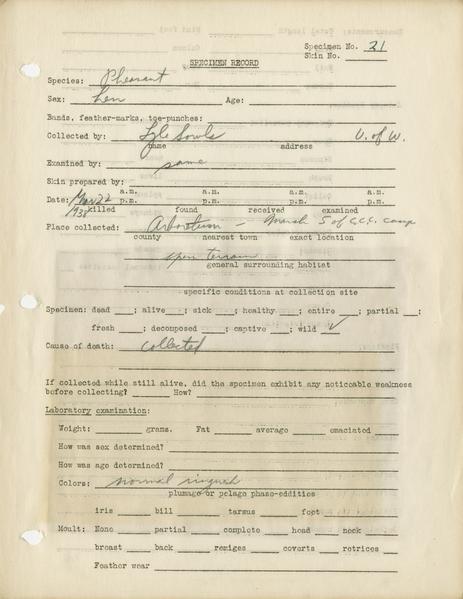 Specimen No. 21
Skin No. ____
SPECIMEN RECORD
Species: Pheasant
Sex: hen Age: ____
Bands, feather-marks, toe-punches:
Collected by: Lyle Sowls U. of W.
name address
Examined by: same
Skin prepared by: ____
a.m. a.m. a.m. a.m.
Date: Mar 22 p.m. p.m. p.m. p.m.
1938 killed found received examined
Place collected: Arboretum - Marsh S of C.C.C. camp
county nearest town exact location
open terrain
general surrounding habitat
specific conditions at collection site
Specimen: dead ___; alive ___; sick ___; healthy ___; entire ___; partial ___;
fresh ___; decomposed ___; captive ___; wild ✓
Cause of death: collected
If collected while still alive, did the specimen exhibit any noticable weakness
before collecting? ____ How? ____
Laboratory examination:
Weight: ____ grams. Fat ____ average ____ emaciated ____
How was sex determined? ____
How was age determined? ____
Colors: normal ringneck
plumage or pelage phase-oddities
iris ____ bill ____ tarsus ____ foot ____
Moult: None ____ partial ____ complete ____ head ____ neck ____
breast ____ back ____ remiges ____ coverts ____ retrices ____
Feather wear ____